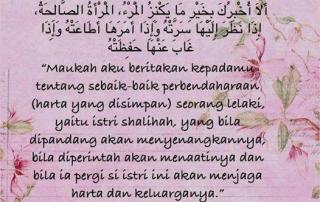 أَلَا أُخْبِرُكَ بِخَيْرِ مَا يَكْنِزُ الْمَرْءُ، الْمَرْأَةُ الصَّالِحَةُ،
إِذَا نَظَرَ إِلَيْهَا سَرَّتْهُ وَإِذَا أَمَرَهَا أَطَاعَتْهُ وَإِذَا
غَابَ عَنْهَا حَفِظَتْهُ
“Maukah aku beritakan kepadamu
tentang sebaik-baik perbendaharaan
(harta yang disimpan) seorang lelaki,
yaitu istri shalihah, yang bila
dipandang akan menyenangkannya,
bila diperintah akan menaatinya dan
bila ia pergi si istri ini akan menjaga
harta dan keluarganya.”